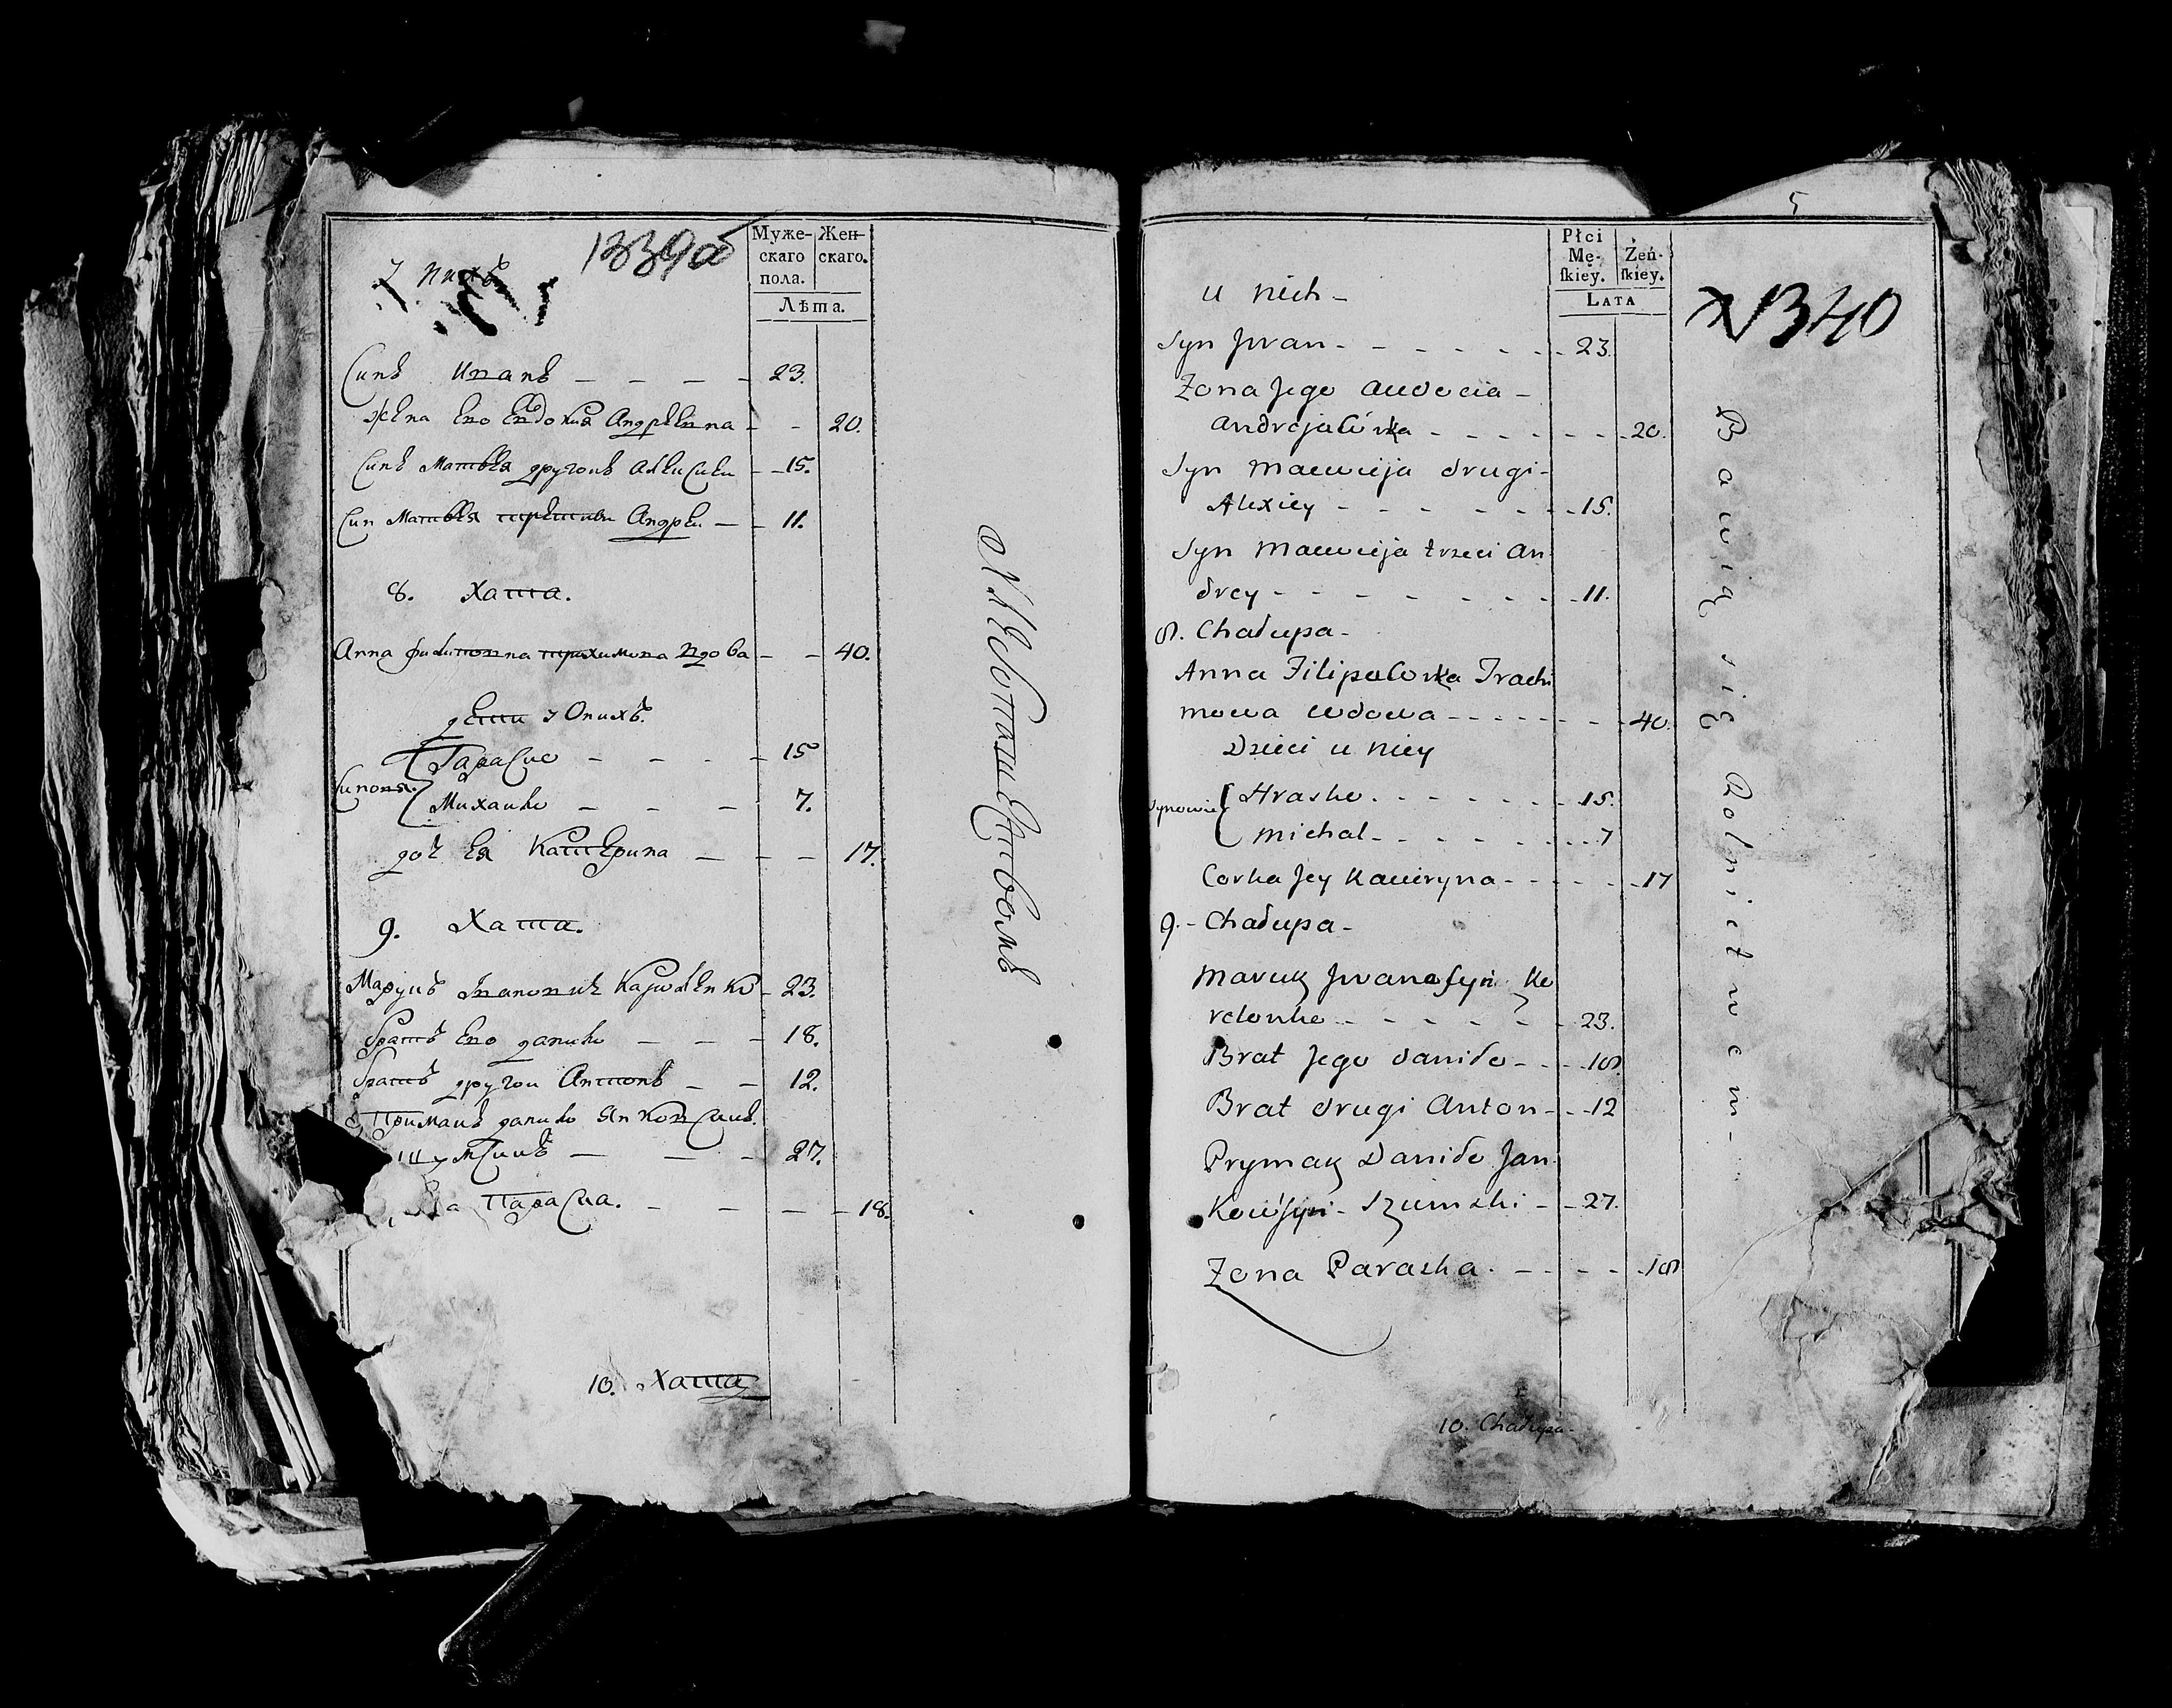 1339об
Муже-
скаго
пола.
Жен-
скаго.
Лѣта.
у нихъ
Синъ Иванъ — — — — 23.
жена его Евдокия Андреевна - - 20.
Синъ Матвѣя другий Алексией - - 15.
Син Матвѣя третий Андрей — - 11.
8. Хата.
Анна Филиповна Трахимова вдова - - 40.
дети у Оних.
Тараско - - - - 15
Синовя. Михайло — — — 7.
доч ея Катерина — — — 17.
9. Хата.
Марунъ Иванович Кароленко - 23.
братъ его данило — — — 18.
братъ другои Антонъ — — 12.
Примакъ данило Янковсинъ.
— — - 27.
Параска. — — — - 18.
10. Хата
5
Płci
Mę-
ſkiey.
Żeń-
ſkiey.
LATA
1340
u nich -
Syn Jwan - - - - - - 23.
Zona Jego Audocia -
Andrejacórka - - - - - - 20.
Syn Macwieja drugi -
Alexiey - - - - - - 15.
Syn Macwieja trzeci An
drey - - - - - - - 11.
8. Chałupa -
Anna Filipacorka Trachi
mowa wdowa - - - - - - - 40.
Dzieci u niey
Synowie Hrasko. - - - - - - 15.
Michał - - - - - - - 7
Corka Jey Kaciryna - - - - - 17
9. - Chałupa -
Maruk Jwanaſyn Ke
relonko - - - - - - 23.
Brat Jego Daniło - - - 18.
Brat drugi Anton - - - 12
Prymak Daniło Jan
Kowſyn - Szumski - - 27.
Zona Paraska. - - - - - 18
10. Chałupa -
Bawią się Rolnictwem -